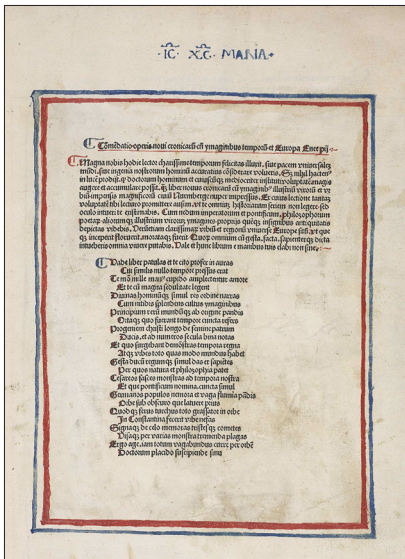 IC XC MARIA
Cōmēdatio operis noui cronicarū cū ymaginibus temporū et Europa Enee pij
Magna nobis hodie lector charissime temporum felicitas illuxit. siue pacem vniuersalē
siue ingenia nostrorum hominū accuratius cōsiderare volueris. Sz nihil hacten⁹
in lucē doctorum hominum et
augere et accumulare possit. liber nouus cronicarū cū ymaginib⁹ illustriū virorū et
magnificarū Nurenberge nuper impressus. Ex cuius lectione tantaz
voluptatē tibi lectori promittere ausim. vt te omniuz historiarum seriem non legere sed
oculis intueri existimabis. Cum nedum imperatorum et pontificum. philosophorum
poetarū aliorumqz illustrium virorum ymagines proprias
depictas videbis. Verum etiam clarissimaz vrbiū et regionū vniuerse Europe
vt
intueberis omnia viuere putabis. Vale et hunc librum e manibus tuis elabi non sine.
Uade liber patulas et te cito profer in auras
Cui similis nullo tempore pressus erat
Te manus mille cupido amplectentur amore
Et te cū magna sedulitate legent
Diuinas hominūqz simul res ordine narras
Cum nitidus splendens cultus ymaginibus
Principium rerū mundūqz ab origine pandis
Ortaqz quo fuerant tempore cuncta refers
Progeniem christi longo de semine patrum
Ducis. et ad numeros secula bina notas
Et quo surgebant demōstras tempora regna
Atqz vrbis toto quas modo mundus habet
Gesta ducū regumqz simul doctas et sapiētes
Per quos natura et philosophia patet
Cesareos fasces monstras ad tempora nostra
Et que pontificum nomina cuncta simul
Germanos populos nemora et vaga flumina pādis
Orbe sub obscuro que latuere prius
Quodqz ferus turchus toto grassator in orbe
In Constantina fecerit vrbe nefas
Signaqz de celo memoras tristesqz cometes
Visaqz per varias monstra tremenda plagas
Ergo age. iam totum vagabundus curre per orbē
Doctorum placido suscipiende sinu